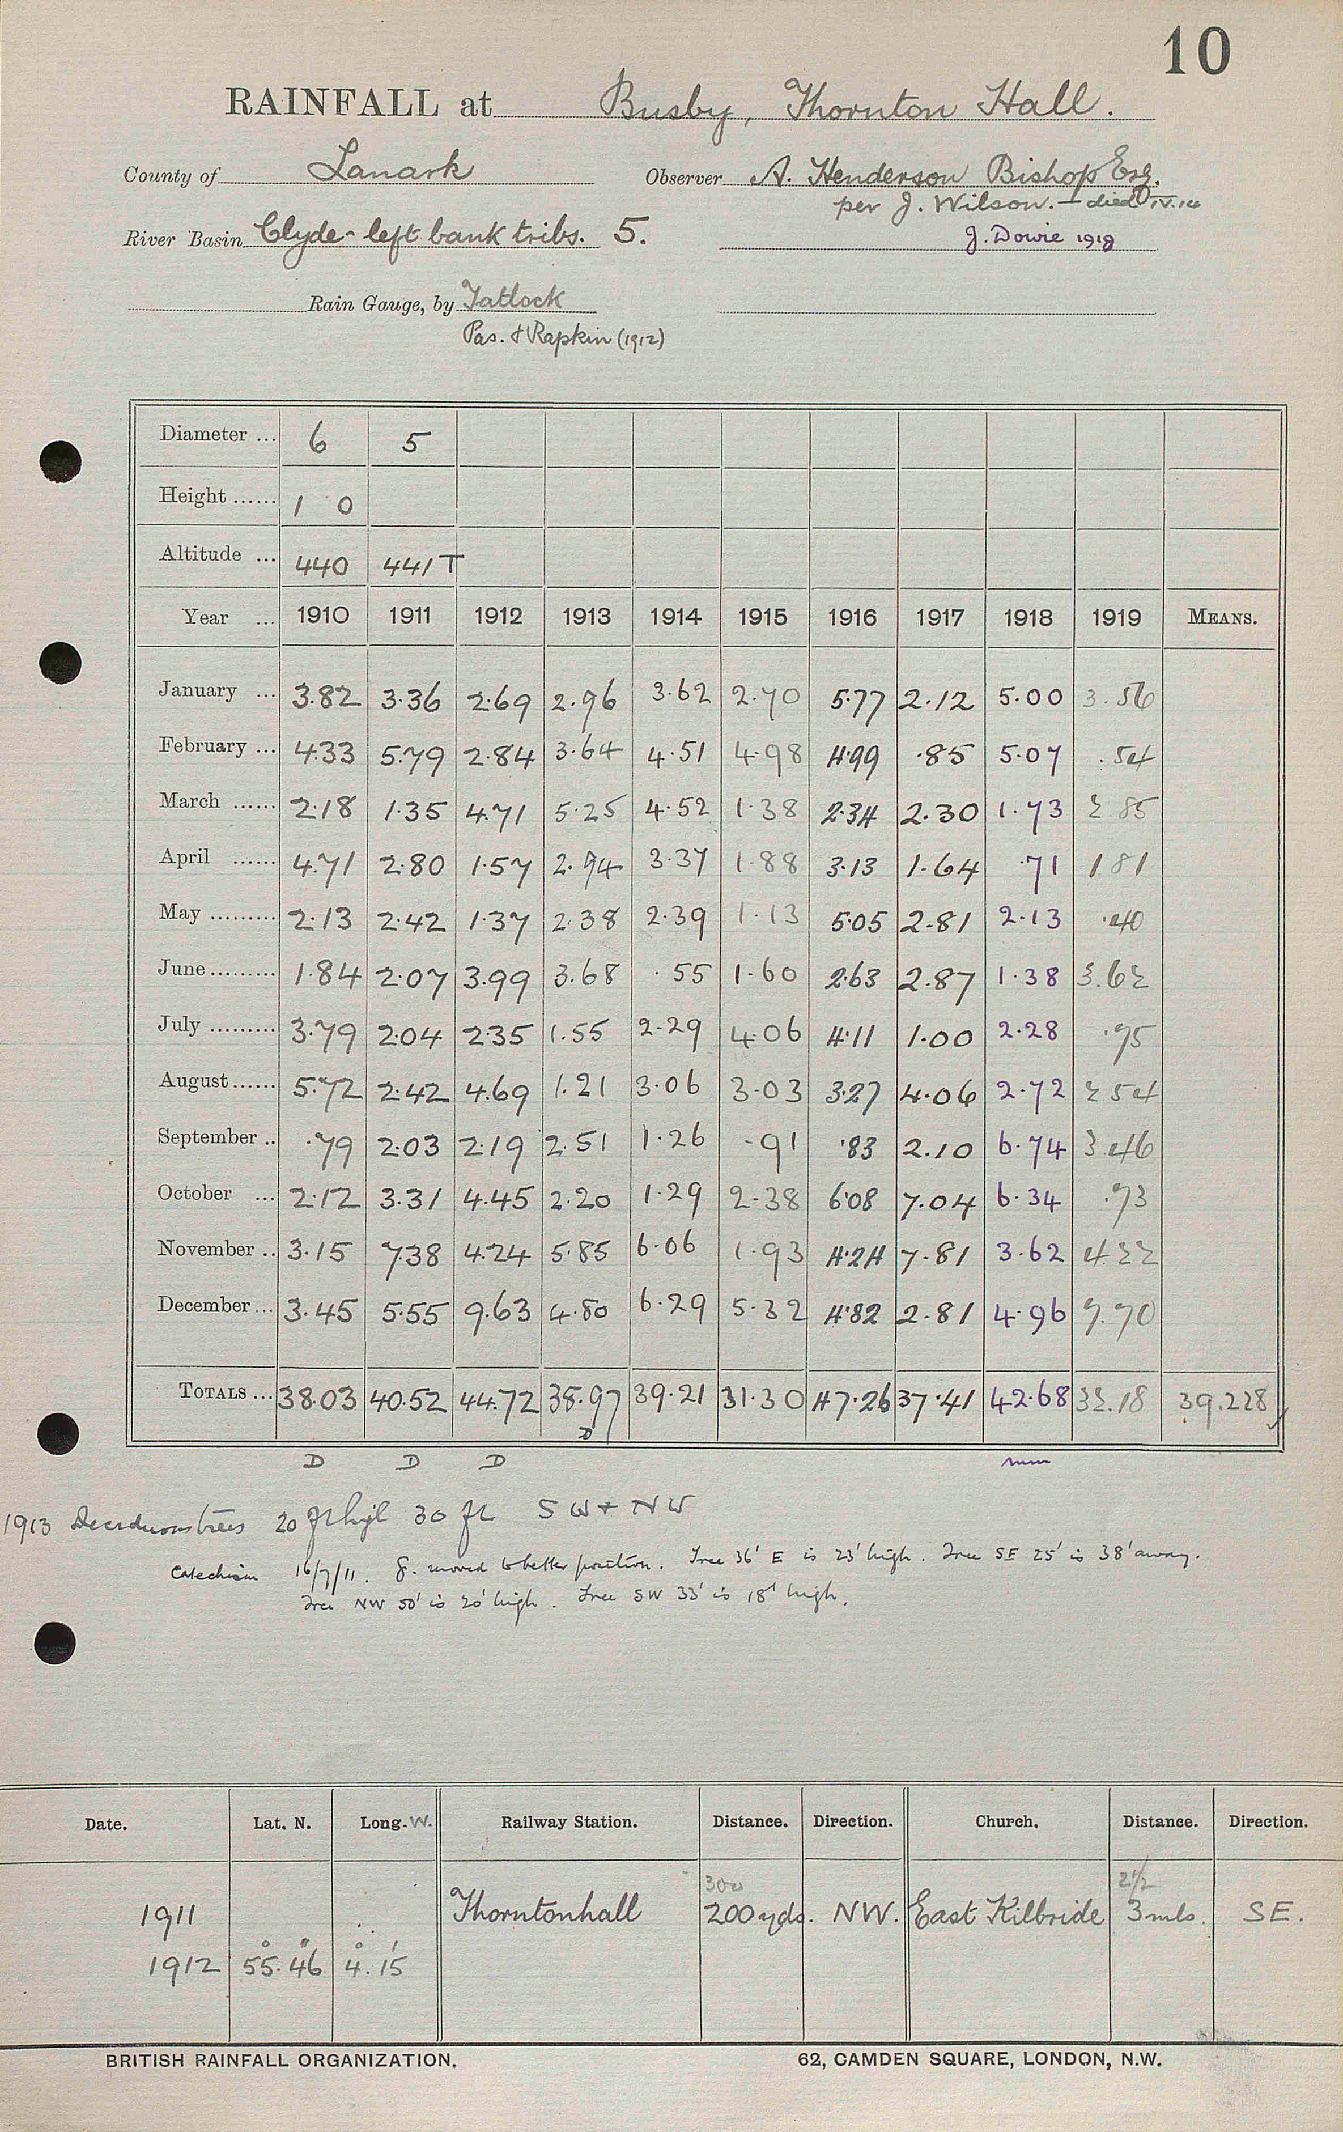 10
RAINFALL at Busby, Thornton Hall.
County of Lanark Observer A. Henderson Bishop Esq.
per J. Wilson. — died IV.14
River Basin Clyde - left bank tribs. 5. J. Dowie 1918
Rain Gauge, by Tatlock
Pas. & Rapkin (1912)
Diameter ... 6 5
Height ...... 1 0
Altitude ... 440 441 T
Year ... 1910 1911 1912 1913 1914 1915 1916 1917 1918 1919 MEANS.
January ... 3.82 3.36 2.69 2.96 3.62 2.70 5.77 2.12 5.00 3.56
February ... 4.33 5.79 2.84 3.64 4.51 4.98 4.99 .85 5.07 .54
March ...... 2.18 1.35 4.71 5.25 4.52 1.38 2.34 2.30 1.73 2.85
April ...... 4.71 2.80 1.57 2.94 3.37 1.88 3.13 1.64 .71 1.81
May ......... 2.13 2.42 1.37 2.38 2.39 1.13 5.05 2.81 2.13 .40
June ......... 1.84 2.07 3.99 3.68 .55 1.60 2.63 2.87 1.38 3.62
July ......... 3.79 2.04 2.35 1.55 2.29 4.06 4.11 1.00 2.28 .95
August ...... 5.72 2.42 4.69 1.21 3.06 3.03 3.27 4.06 2.72 2.54
September .. .79 2.03 2.19 2.51 1.26 .91 .83 2.10 6.74 3.46
October ... 2.12 3.31 4.45 2.20 1.29 2.38 6.08 7.04 6.34 .73
November .. 3.15 7.38 4.24 5.85 6.06 1.93 4.24 7.81 3.62 4.22
December ... 3.45 5.55 9.63 4.80 6.29 5.32 4.82 2.81 4.96 7.70
TOTALS ... 38.03 40.52 44.72 38.97 39.21 31.30 47.26 37.41 42.68 32.18 39.228
D D D D
1913 Deciduous trees 20 ft high 30 ft SW + NW
Catechism 16/7/11. g. moved to better position. Tree 36' E is 23' high. Tree SE 25' is 38' away.
Tree NW 50' is 20' high. Tree SW 33' is 18' high.
Date. Lat. N. Long. W. Railway Station. Distance. Direction. Church. Distance. Direction.
300 2½
1911 Thorntonhall 200 yds. NW. East Kilbride 3 mls. SE.
1912 55° 46' 4° 15'
BRITISH RAINFALL ORGANIZATION. 62, CAMDEN SQUARE, LONDON, N.W.